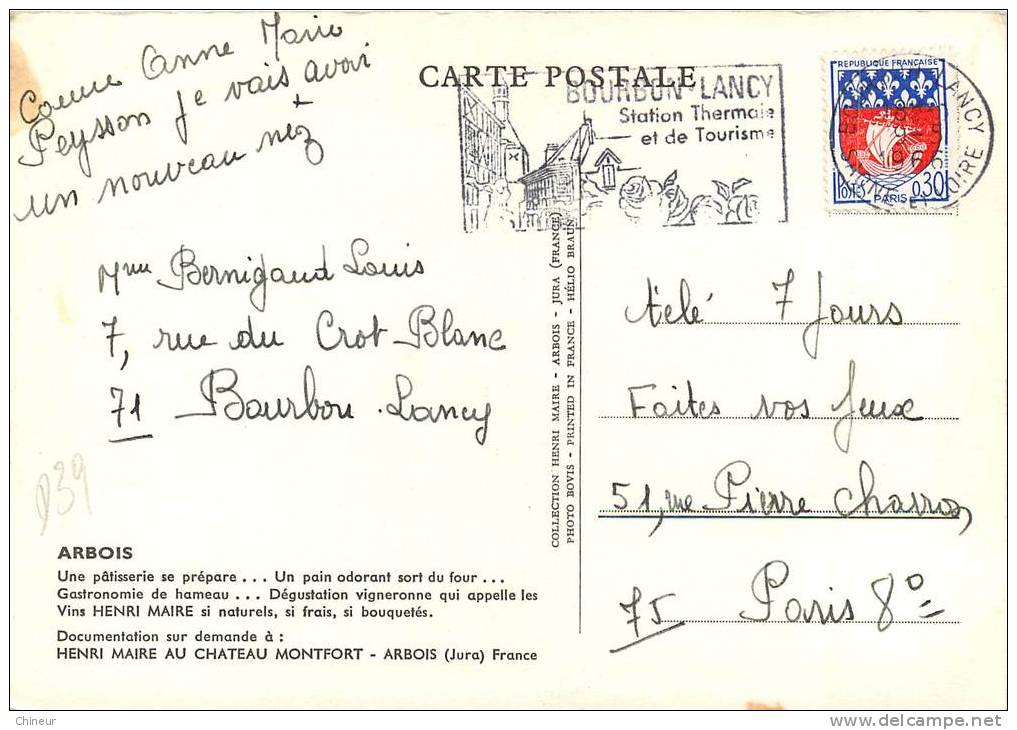 Comme Anne Marie
Peysson je vais avoir
un nouveau nez
CARTE POSTALE
BOURBON-LANCY
Station Thermale
et de Tourisme
REPUBLIQUE FRANÇAISE
POSTES 0,30
PARIS
LANCY
1966
SAONE ET LOIRE
Mme Bernigaud Louis
7, rue du Crot Blanc
71 Bourbon-Lancy
télé 7 Jours
Faites vos Jeux
51, rue Pierre Charron,
75 Paris 8º
D39
COLLECTION HENRI MAIRE - ARBOIS - JURA (FRANCE)
PHOTO BOVIS - PRINTED IN FRANCE - HÉLIO BRAUN
ARBOIS
Une pâtisserie se prépare ... Un pain odorant sort du four ...
Gastronomie de hameau ... Dégustation vigneronne qui appelle les
Vins HENRI MAIRE si naturels, si frais, si bouquetés.
Documentation sur demande à :
HENRI MAIRE AU CHATEAU MONTFORT - ARBOIS (Jura) France
Chineur
www.delcampe.net